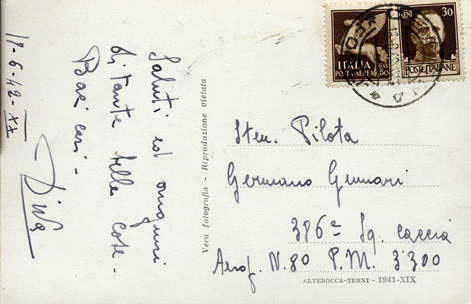 17-6-42-XX
Saluti ed auguri
di tante belle cose -
Baci cari -
Vera fotografia - Riproduzione vietata
ITALIA
POSTA AEREA
50
30
POSTE ITALIANE
Sten. Pilota
Germano Gennari
386ª Sq. Caccia
Aerop. N. 80 P. M. 3300
ALTEROCCA-TERNI - 1941-XIX